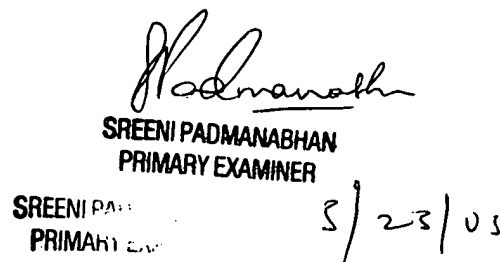 SPadmanabhan
SREENI PADMANABHAN
PRIMARY EXAMINER
SREENI
PRIMARY
3/23/05